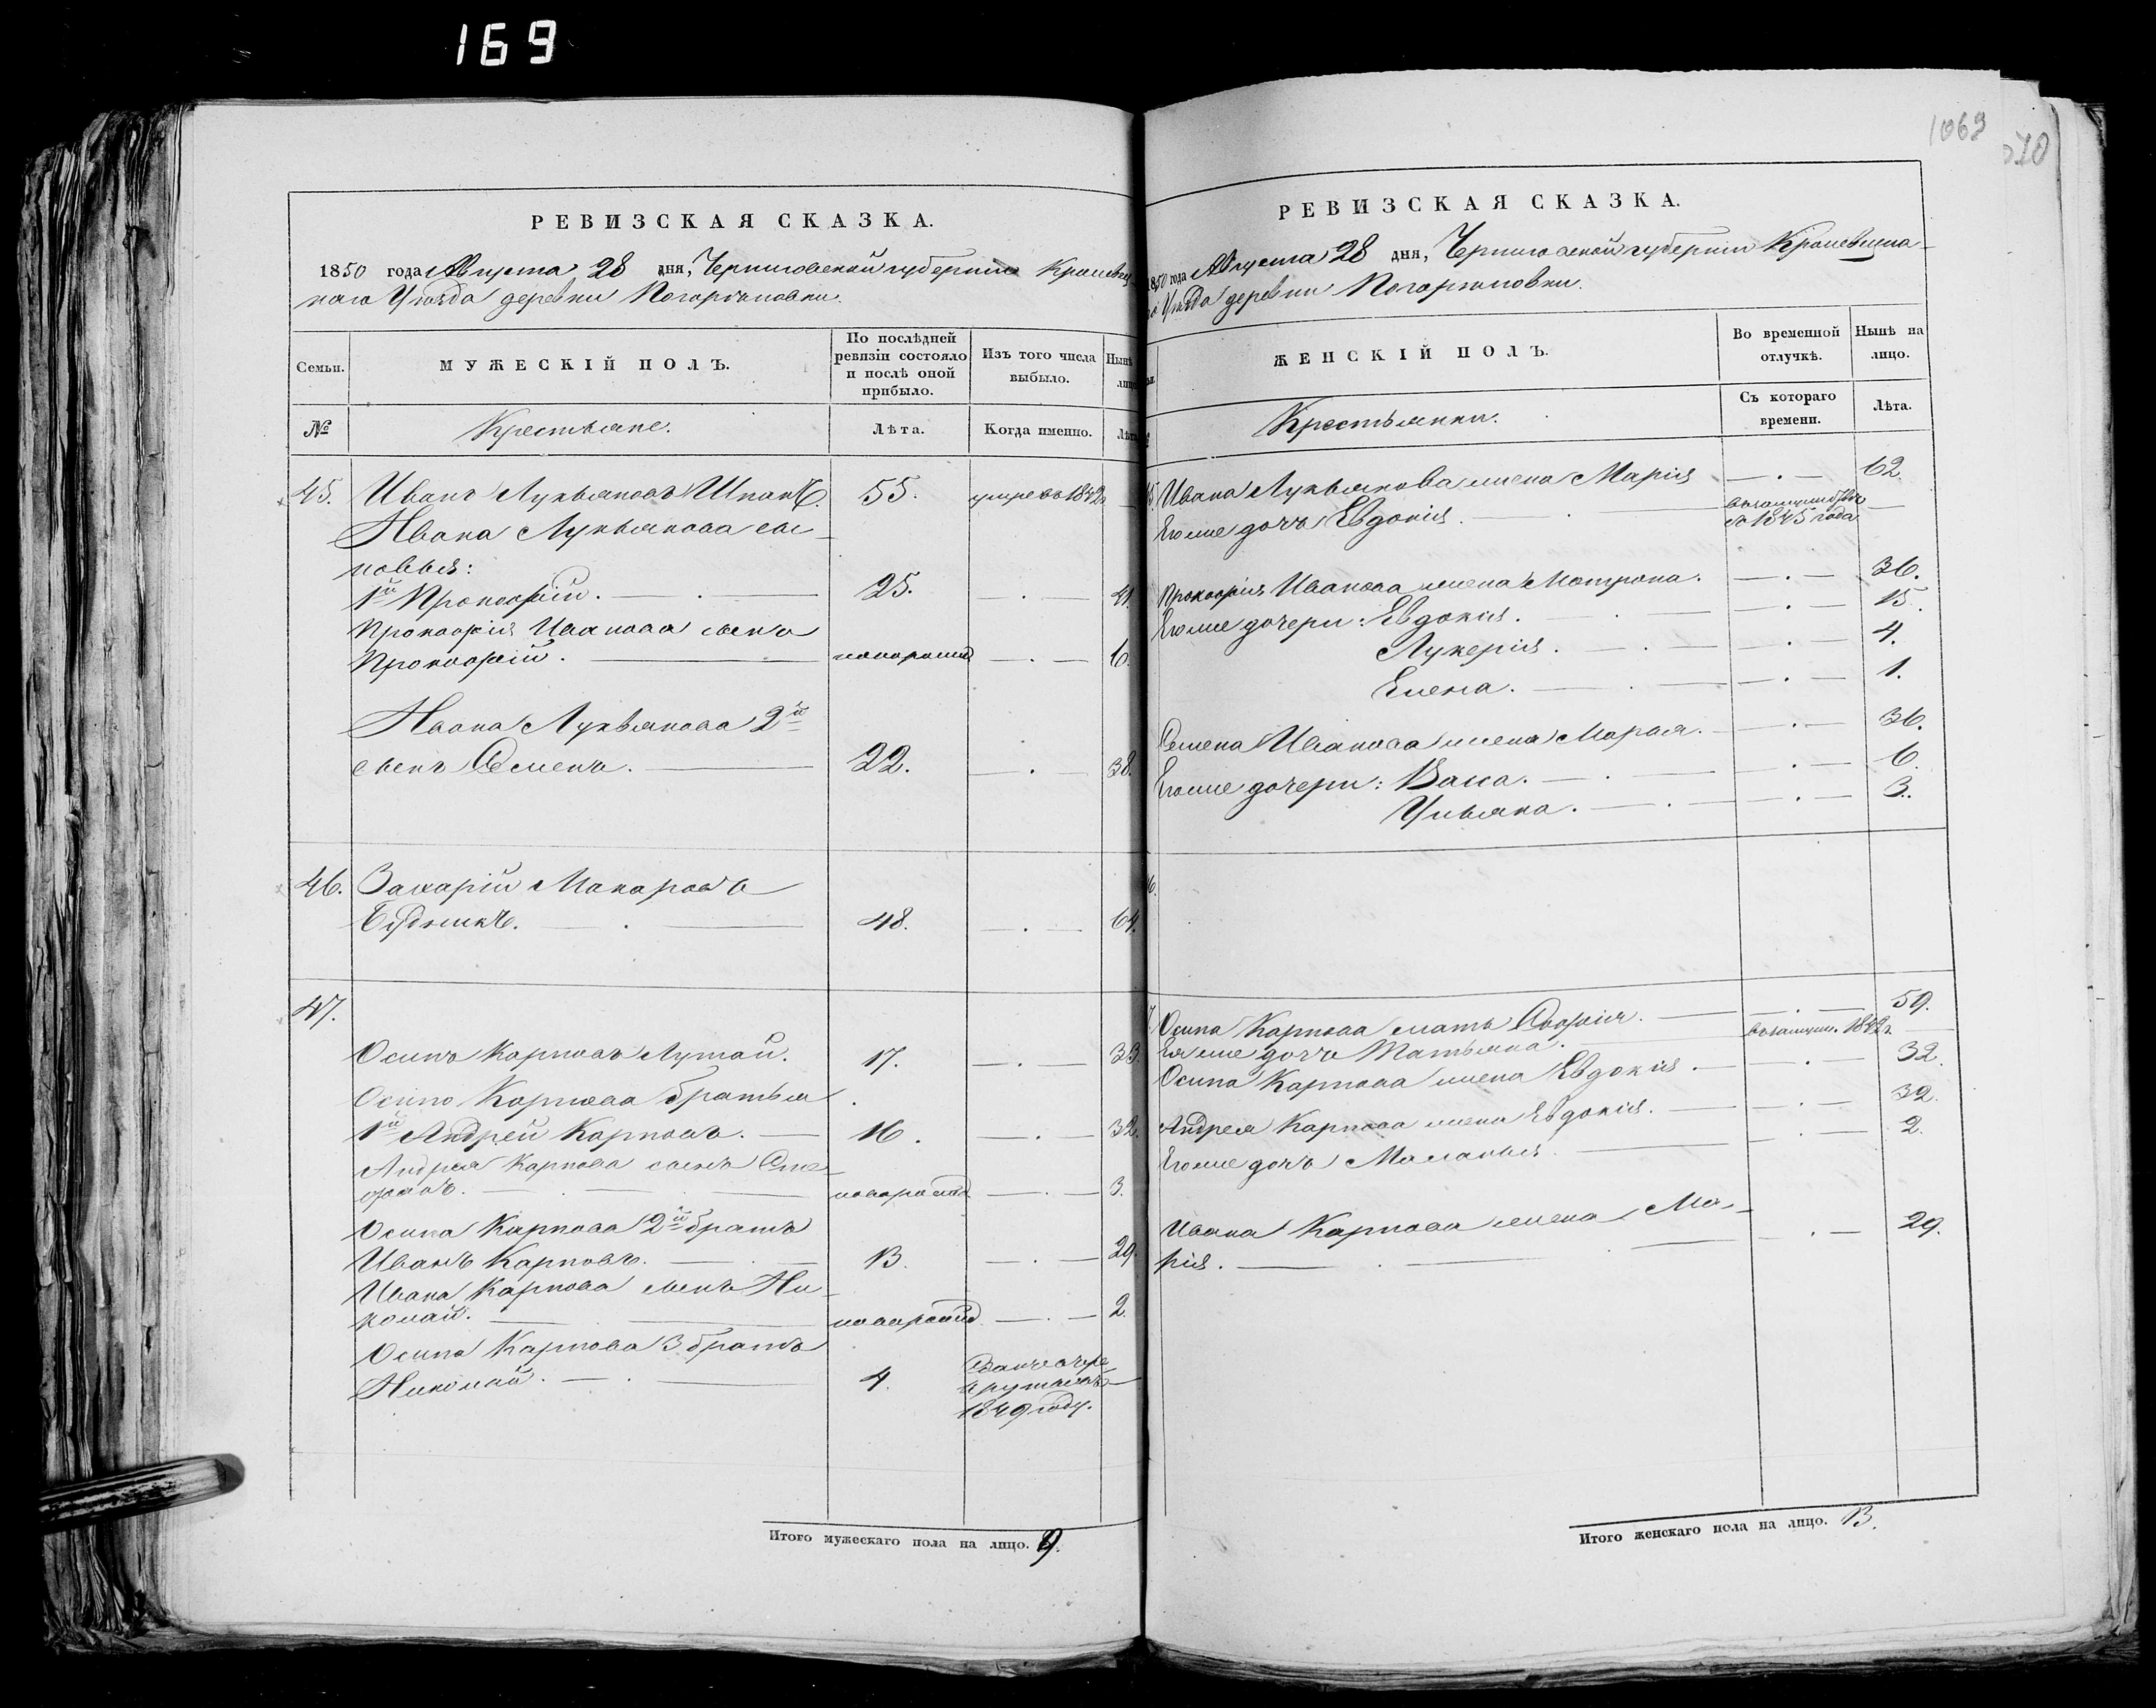 169
1069
РЕВИЗСКАЯ СКАЗКА.
1850 года Августа 28 дня, Черниговской губернии Кролевец
каго Уезда деревни
Семьи.
МУЖЕСКІЙ ПОЛЪ.
По послѣдней
ревизіи состояло
и послѣ оной
прибыло.
Изъ того числа
выбыло.
Нынѣ
лицо
№
Крестьяне.
Лѣта.
Когда именно.
Лѣта
45. Иванъ Лукьяновъ 55. умре въ 1842 г
Ивана Лукьянова сы-
новья:
1й Прокофій. 25. 41.
Прокофія Иванова сынъ
Прокофій. новорожд 6.
Ивана Лукьянова 2й
сынъ Семенъ. 22. 38.
46. Захарій Макаровъ
48. 64.
47.
Осипъ Карповъ Лутай. 17. 33.
Осипа Карпова братья
1й Андрей Карповъ. 16. 32.
Андрея Карпова сынъ Сте-
фанъ. новорожд 3.
Осипа Карпова 2й братъ
Иванъ Карповъ. 13. 29.
Ивана Карпова сынъ Ни-
колай. новорожд 2.
Осипа Карпова 3 братъ
Николай. 4.
1849 году.
Итого мужескаго пола на лицо. 9.
РЕВИЗСКАЯ СКАЗКА.
1850 года Августа 28 дня, Черниговской губернии Кролевецка-
го Уезда деревни
ЖЕНСКІЙ ПОЛЪ.
Во временной
отлучкѣ.
Нынѣ на
лицо.
Крестьянки.
Съ котораго
времени.
Лѣта.
Ивана Лукьянова жена Марія 62
Его же дочь Евдокія. въ замуж
съ 1845 года
Прокофія Иванова жена Матрона. 36.
Его же дочери: Евдокія. 15.
Лукерія. 4.
Елена. 1.
Семена Иванова жена Марья. 36.
Его же дочери: Васса. 6.
Ульяна. 3.
Осипа Карпова мать Софія. 59.
Ея же дочь Татьяна. въ замуж. 1842 г
Осипа Карпова жена Евдокія. 32.
Андрея Карпова жена Евдокія. 32.
Его же дочь Маланья. 2.
Ивана Карпова жена Ма-
рія. 29.
Итого женскаго пола на лицо. 13.